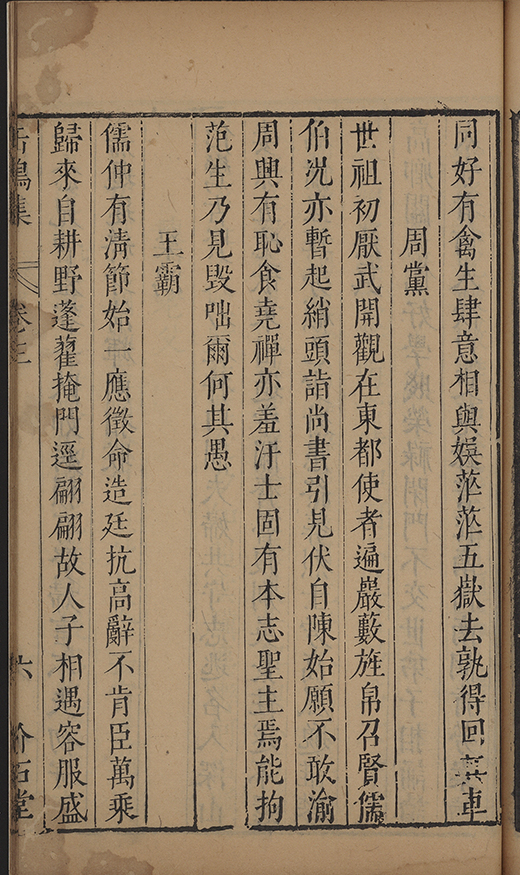 同好有禽生肆意相與娱茫茫五嶽去孰得回其車
周黨
世祖初厭武開觀在東都使者遍巖藪旌帛召賢儒
伯况亦暫起綃頭詣尚書引見伏自陳始願不敢渝
周興有恥食堯禪亦羞汙士固有本志聖主焉能拘
范生乃見毀咄爾何其愚
王霸
儒仲有淸節始一應徵命造廷抗高辭不肯臣萬乘
歸來自耕野蓬藋掩門逕翩翩故人子相遇容服盛
卷三
六